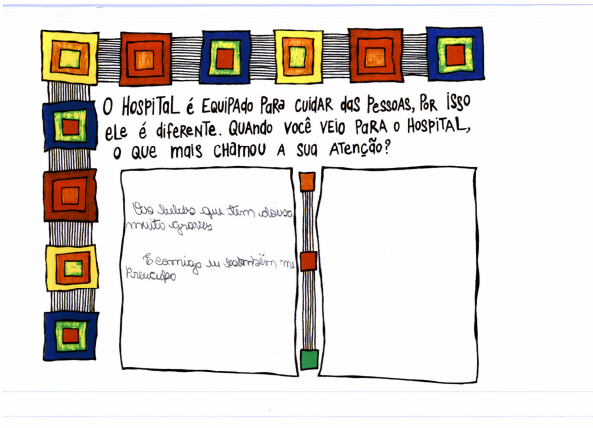 O HOSPITAL é EQUIPADO PARA CUIDAR DAS PESSOAS, POR ISSO
ELE É DIFERENTE. QUANDO VOCÊ VEIO PARA O HOSPITAL,
O QUE MAIS CHAMOU A SUA ATENÇÃO?
bebes que tem doisa
muito graves
E comigo eu também me
Preucupo